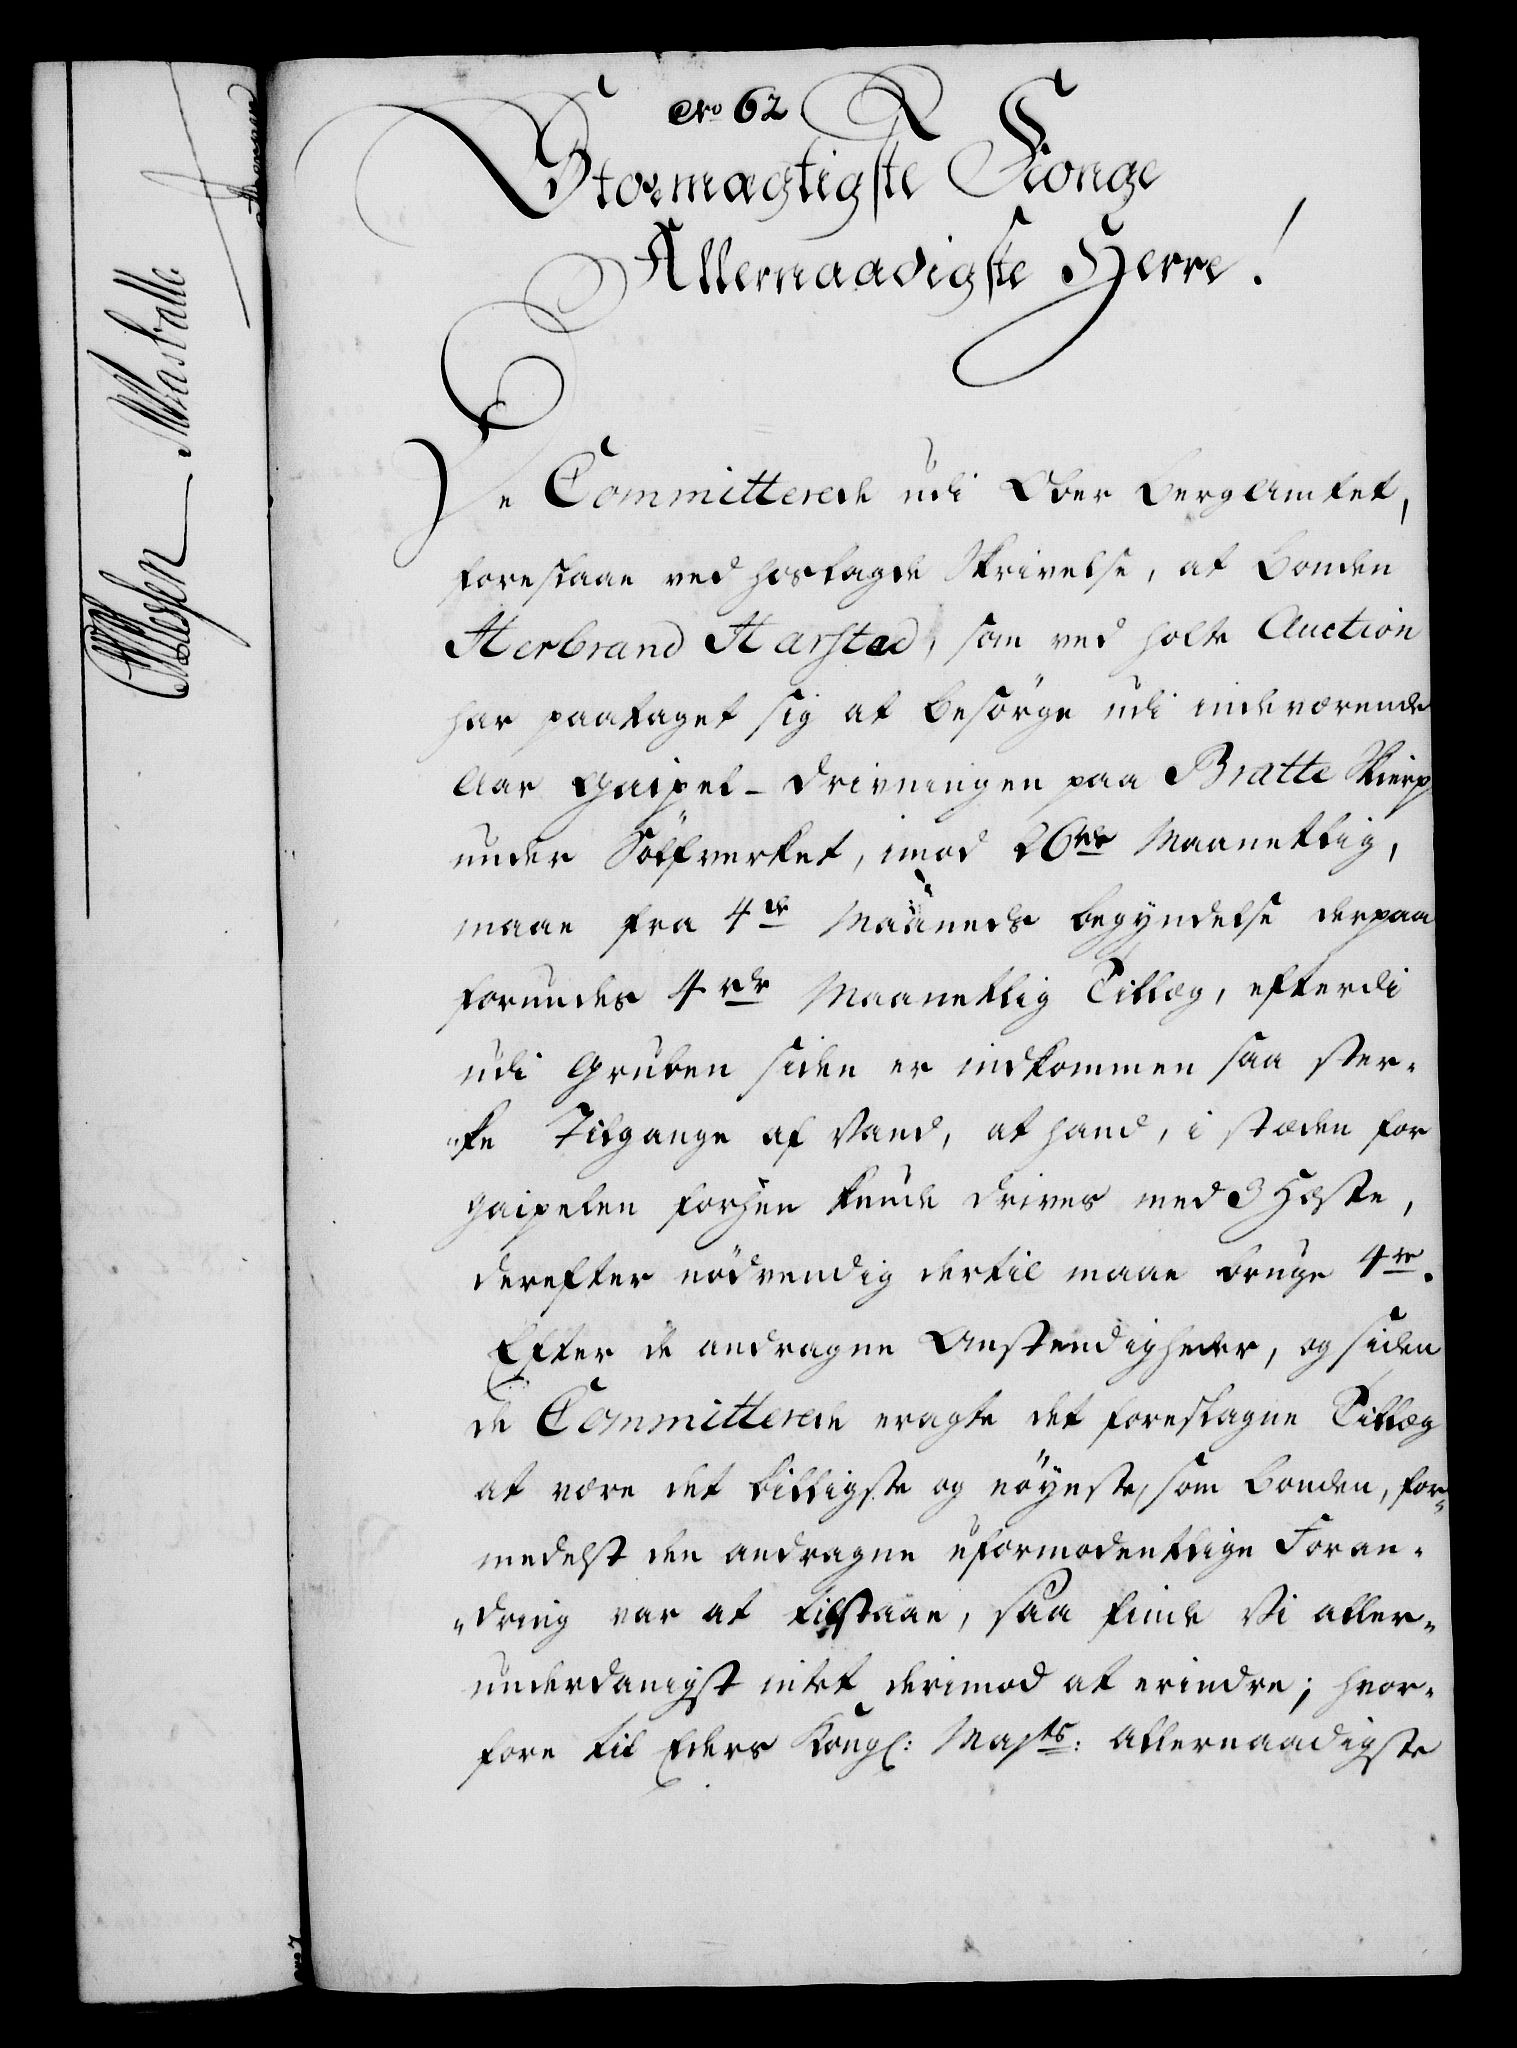 No 62
Stormægtigste Konge
Allernaadigste Herre!
De Committerede udi Ober BergAmtet,
forestaae ved hostagde Skrivelse, at Bonden
Herbrand Harstad, som ved holte Auction
har paataget sig at besørge udi indeværende
Aar Gaipel-Drivningen paa Bratte Skierp
under Sølfverket, imod 26 rdr Maanetlig,
maae fra 4de Maaneds begyndelse derpaa
forundes 4 rdr Maanetlig Tillæg, efterdi
udi Gruben siden er indkommen saa ster-
-ke Tilgange af Vand, at hand, i stæden for
gaipelen forhen kunde drives med 3 Hæste,
derefter nødvendig dertil maae bruge 4re.
Efter de andragne Omstendigheder, og siden
de Committerede eragte det foreslagne Tillæg
at være det billigste og nøyeste, som Bonden, for-
medelst den andragne uformodentlige Foran-
-dring var at tilstaae, saa finde Vi aller-
underdanigst intet derimod at erindre; hvor-
fore til Eders Kongl: Majts: allernaadigste